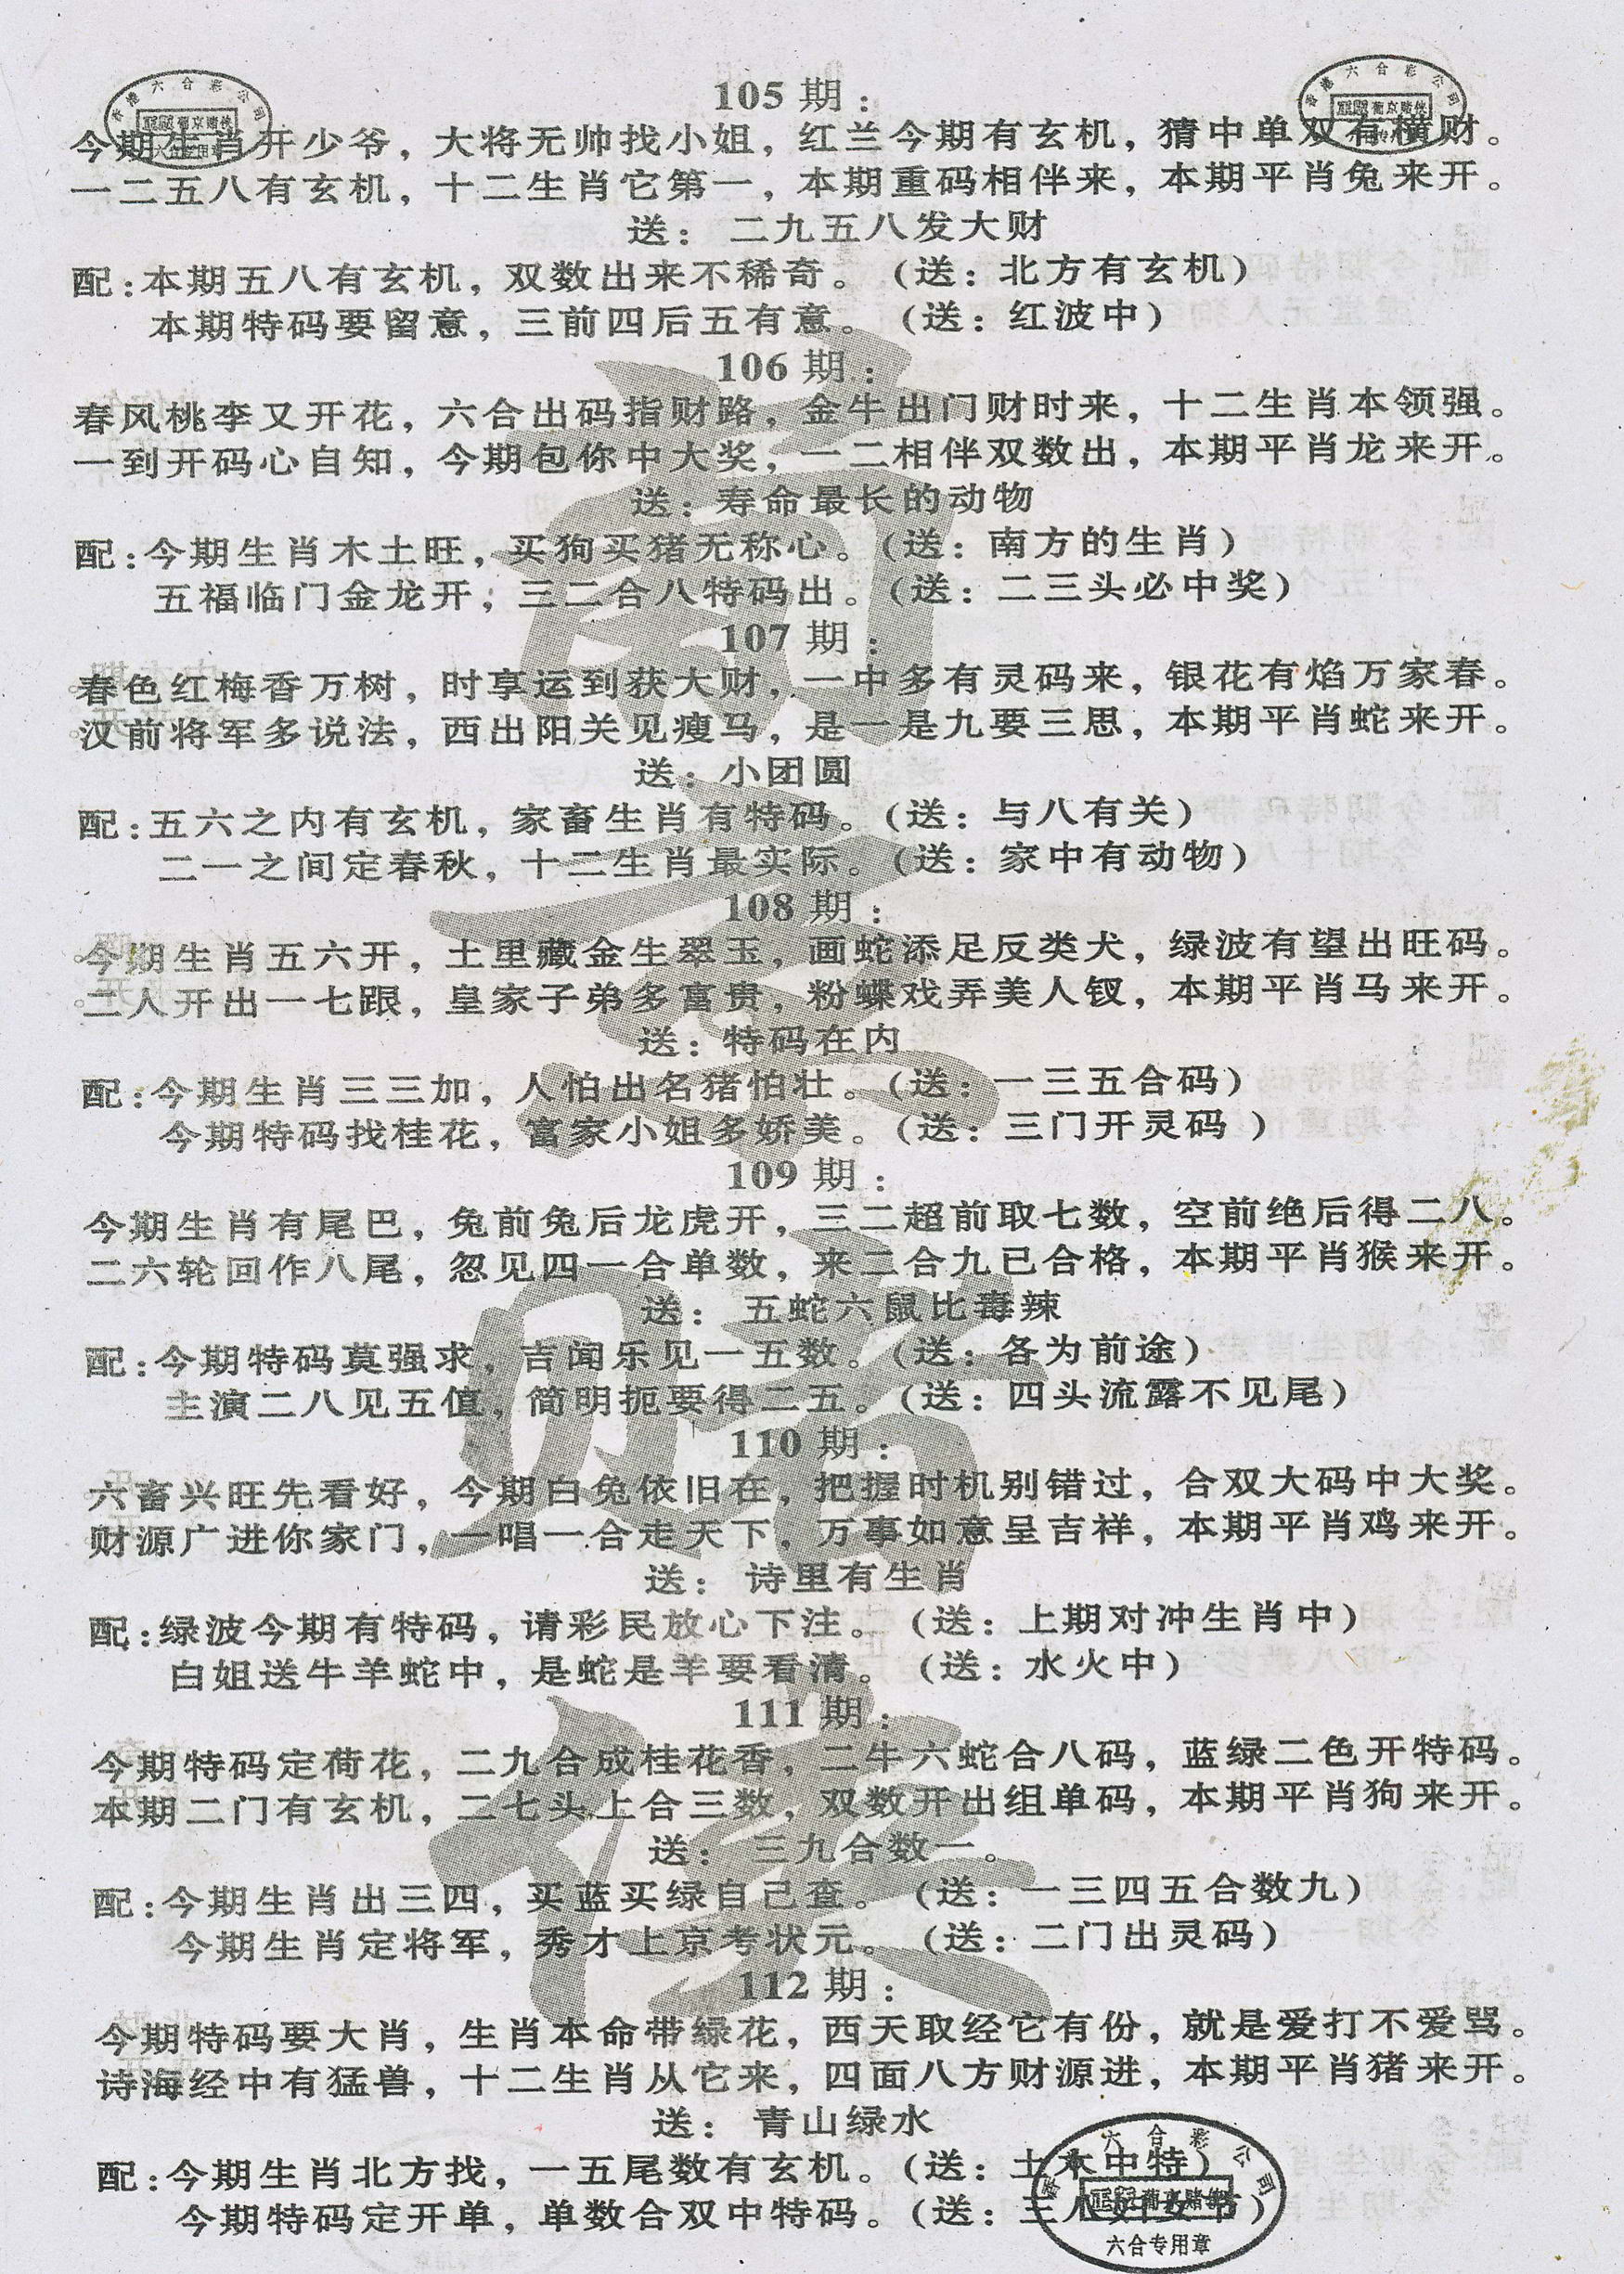 105 期：
今期生肖开少爷，大将无帅找小姐，红兰今期有玄机，猜中单双有横财。
一二五八有玄机，十二生肖它第一，本期重码相伴来，本期平肖兔来开。
送： 二九五八发大财
配：本期五八有玄机，双数出来不稀奇。（送：北方有玄机）
本期特码要留意，三前四后五有意。（送：红波中）
106 期：
春风桃李又开花，六合出码指财路，金牛出门财时来，十二生肖本领强。
一到开码心自知，今期包你中大奖，一二相伴双数出，本期平肖龙来开。
送：寿命最长的动物
配：今期生肖木土旺，买狗买猪无称心。（送：南方的生肖）
五福临门金龙开，三二合八特码出。（送：二三头必中奖）
107 期：
春色红梅香万树，时享运到获大财，一中多有灵码来，银花有焰万家春。
汉前将军多说法，西出阳关见瘦马，是一是九要三思，本期平肖蛇来开。
送：小团圆
配：五六之内有玄机，家畜生肖有特码。（送：与八有关）
二一之间定春秋，十二生肖最实际。（送：家中有动物）
108 期：
今期生肖五六开，土里藏金生翠玉，画蛇添足反类犬，绿波有望出旺码。
二人开出一七跟，皇家子弟多富贵，粉蝶戏弄美人钗，本期平肖马来开。
送：特码在内
配：今期生肖三三加，人怕出名猪怕壮。（送：一三五合码）
今期特码找桂花，富家小姐多娇美。（送：三门开灵码 ）
109 期：
今期生肖有尾巴，兔前兔后龙虎开，三二超前取七数，空前绝后得二八。
二六轮回作八尾，忽见四一合单数，来二合九已合格，本期平肖猴来开。
送： 五蛇六鼠比毒辣
配：今期特码莫强求，吉闻乐见一五数。（送：各为前途）
主演二八见五值，简明扼要得二五。（送：四头流露不见尾）
110 期：
六畜兴旺先看好，今期白兔依旧在，把握时机别错过，合双大码中大奖。
财源广进你家门，一唱一合走天下，万事如意呈吉祥，本期平肖鸡来开。
送： 诗里有生肖
配：绿波今期有特码，请彩民放心下注。（送：上期对冲生肖中）
白姐送牛羊蛇中，是蛇是羊要看清。（送：水火中）
111 期：
今期特码定荷花，二九合成桂花香，二牛六蛇合八码，蓝绿二色开特码。
本期二门有玄机，二七头上合三数，双数开出组单码，本期平肖狗来开。
送： 三九合数一。
配：今期生肖出三四，买蓝买绿自己查。（送：一三四五合数九）
今期生肖定将军，秀才上京考状元。（送：二门出灵码）
112 期：
今期特码要大肖，生肖本命带绿花，西天取经它有份，就是爱打不爱骂。
诗海经中有猛兽，十二生肖从它来，四面八方财源进，本期平肖猪来开。
送： 青山绿水
配：今期生肖北方找，一五尾数有玄机。（送：土木中特）
今期特码定开单，单数合双中特码。（送：三八妇女节）
六合专用章